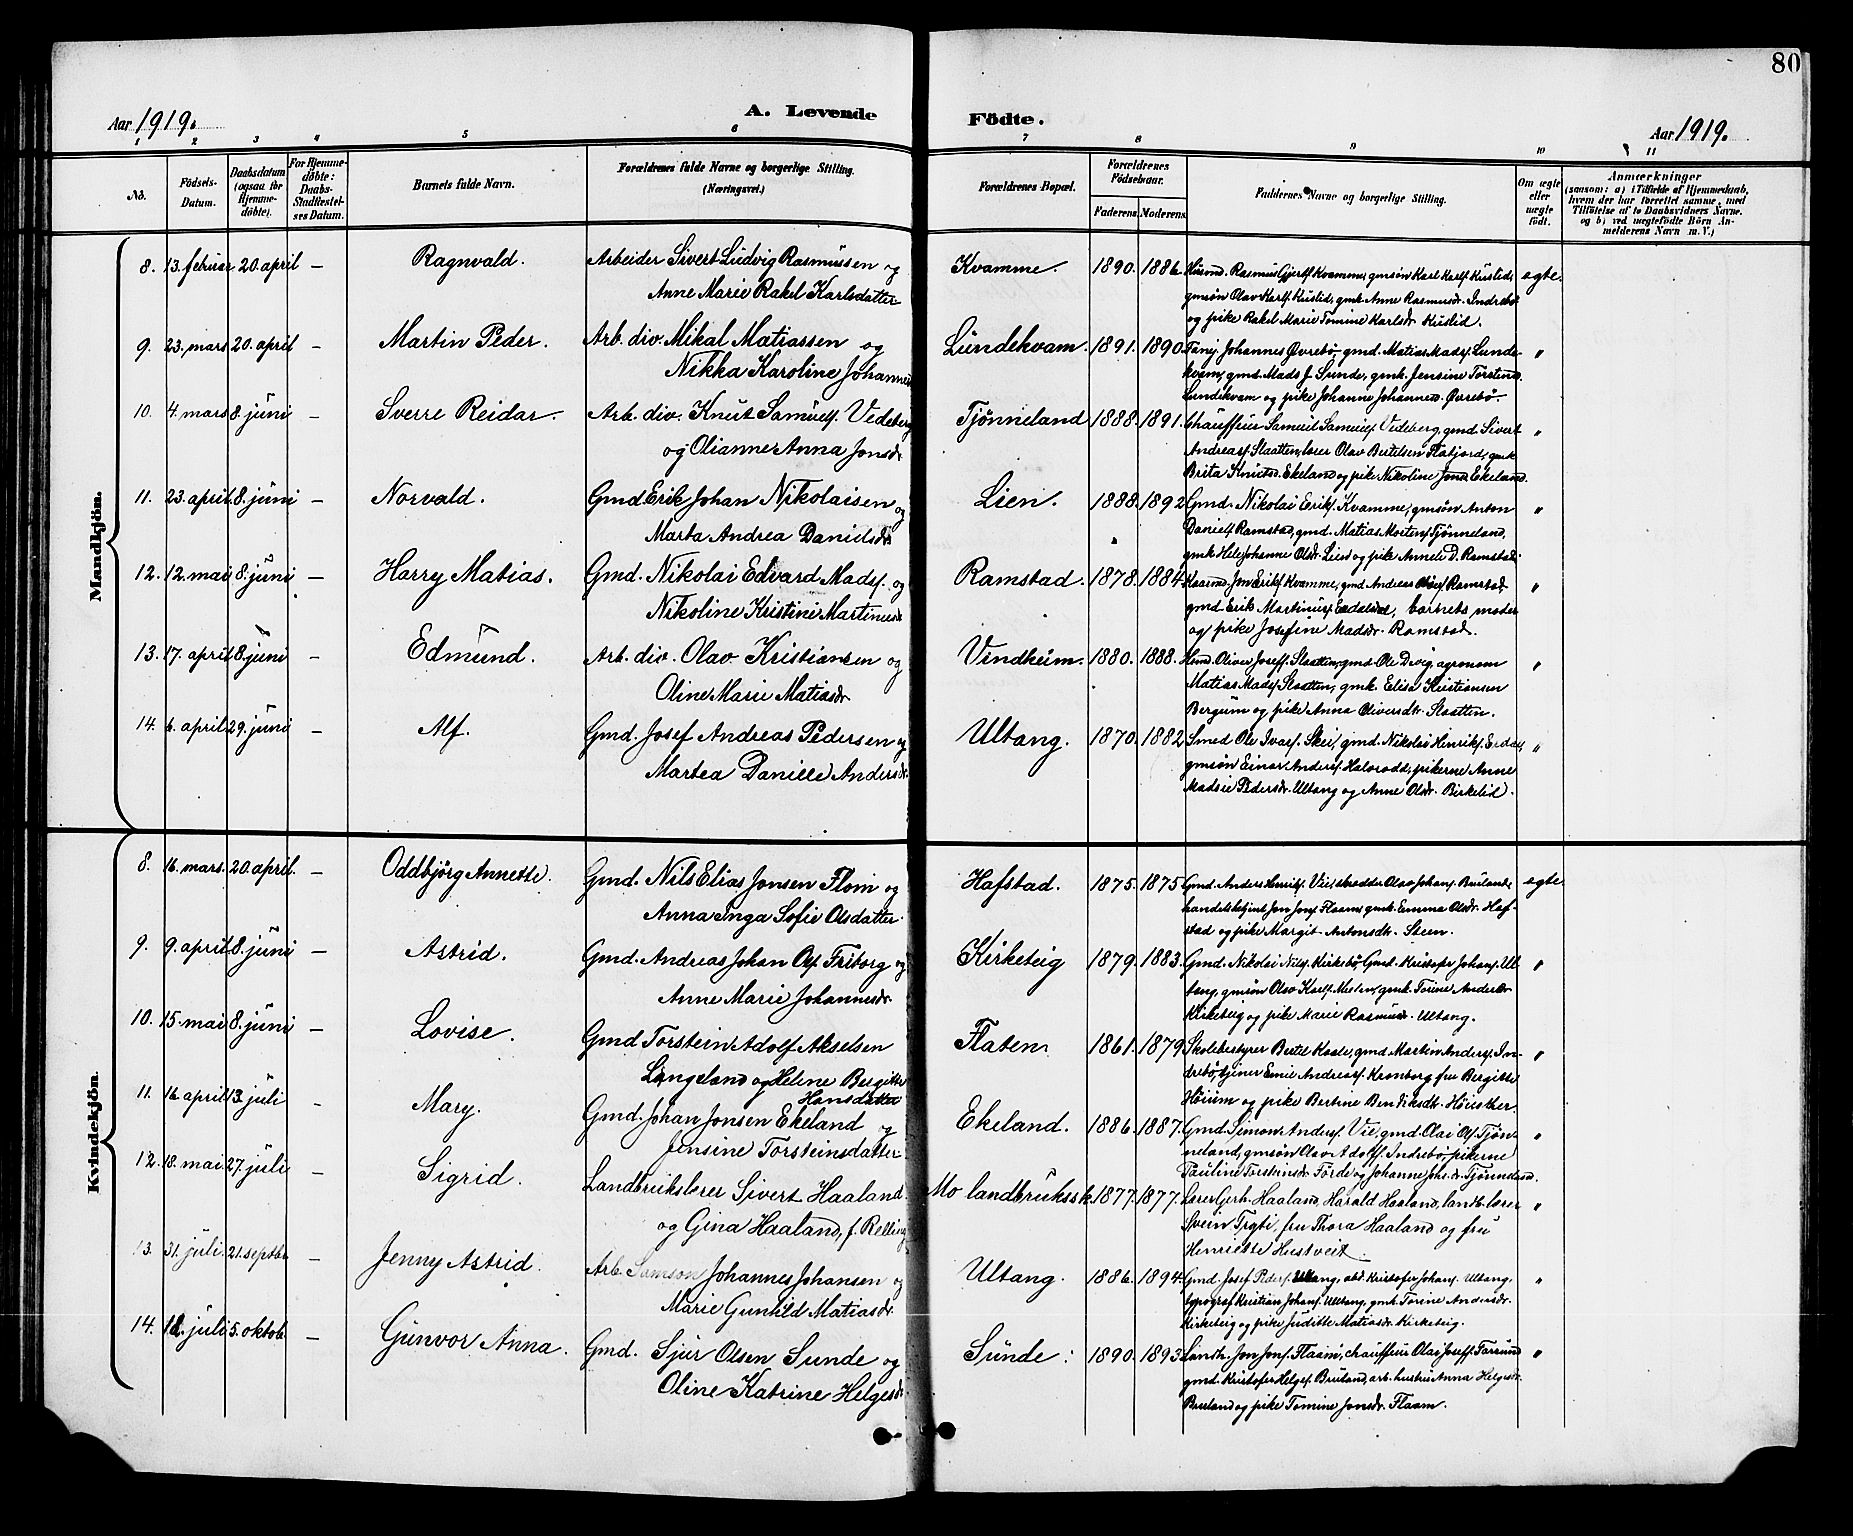 80
Aar 1919.
A. Levende
Födte.
Aar 1919.
1 2 3 4 5 6 7 8 9 10 11
No.
Födsels-
Datum.
Daabsdatum
(ogsaa for
Hjemme-
döbte).
For Hjemme-
döbte:
Daabs-
Stadfæstel-
ses Datum.
Barnets fulde Navn.
Forældrenes fulde Navne og borgerlige Stilling.
(Næringsvei.)
Forældrenes Bopæl.
Forældrenes
Födselsaar.
Faderens. Moderens.
Faddernes Navne og borgerlige Stilling.
Om ægte
eller
uægte
födt.
Anmærkninger
(saasom: a) i Tilfælde af Hjemmedaab,
hvem der har forrettet samme, med
Tilföielse af to Daabsvidners Navne.
og b) ved uægtefödte Börn An-
melderens Navn m. V.)
Mandkjön.
8. 13. februar 20. april – Ragnvald. Arbeider Sivert Ludvig Rasmussen og
Anne Marie Rakel Karlsdatter
Kvamme. 1890. 1886. Husmd. Rasmus Gjertf. Kvamme, gmsön Karl Karlf. Kuslid, ægte.
gmsön Olav Karlf. Kuslid, gmk. Anne Rasmusdr. Indrebö
og pike Rakel Marie Tomine Karlsdr. Kuslid.
9. 23. mars 20. april – Martin Peder. Arb. div. Mikal Matiassen og
Nikka Karoline Johannesdr
Lundekvam. 1891. 1890. Johannes Øvrebö, gmd. Matias Madsf. Lunde- "
kvam, gmd. Mads J. Sunde, gmk. Jensine Torstensd.
Lundekvam og pike Johanne Johannesd. Øvrebö
10. 4. mars 8. juni – Sverre Reidar. Arb. div. Knut Samuelf. Vedeberg
og Olianne Anna Jonsdr
Tjönneland 1888. 1891. Chauffeur Samuel Samuelf. Vedeberg, gmd. Sivert "
Andreasf. Slaatten, lærer Olav Bertilsen Flatjord, gmk
Brita Knutsd. Ekeland og pike Nikoline Jonsd. Ekeland.
11. 23. april 8. juni – Norvald. Gmd. Erik Johan Nikolaisen og
Marta Andrea Danielsdr
Lien. 1888. 1892. Gmd. Nikolai Erikf. Kvamme, gmsön Anton "
Danielf. Ramstad, gmd. Matias Mortenf. Tjönneland,
gmk. Johanne Olsdr. Lien og pike Anneli D. Ramstad.
12. 12. mai 8. juni – Harry Matias. Gmd. Nikolai Edvard Madsf. og
Nikoline Kristine Martinusdr
Ramstad. 1878. 1884. Jon Erikf. Kvamme, gmd. Andreas Ramstad, "
gmd. Erik Martinusf. Erdalen, barnets moder
og pike Josefine Madsdr. Ramstad.
13. 17. april 8. juni – Edmund. Arb. div. Olav Kristiansen og
Oline Marie Matiasdr
Vindheim. 1880. 1888. Oliver Joseff. Slaatten, gmd. Ole Devig, agronom "
Matias Madsf. Slaatten, gmk. Elisa Kristiansen
Bergum og pike Anna Oliversdtr. Slaatten.
14. 6. april 29. juni – Alf. Gmd. Josef Andreas Pedersen og
Martea Danille Andersdr.
Ultang. 1870. 1882. Smed Ole Ivarf. Skei, gmd. Nikolai Henrikf. Erdal, "
gmsön Einar Andersf. Halvrodd, pikerne Anne
Madsie Pedersdr. Ultang og Anne Olsdr. Birkelid.
Kvindekjön.
8. 16. mars. 20. april. – Oddbjörg Annette. Gmd. Nils Elias Jonsen Flom og
Anna Inga Sofie Olsdatter
Hafstad. 1875. 1875. Gmd. Anders Henrikf. Vie, skrædder Olav Johanf. Bruland, ægte.
handelsbetjent Jon Jonf. Flaam, gmk. Emma Olsdr. Haf-
stad og pike Margit Antonsdtr. Steen.
9. 9. april 8. juni – Astrid. Gmd. Andreas Johan Olf. Friborg og
Anne Marie Johannesdr.
Kirketeig 1879. 1883. Gmd. Nikolai Nilsf. Kirkebö, Gmd. Kristofer Johanf. Ul- "
tang, gmsön Olav Karlf. Mælen, gmk. Torine Andersdr
Kirketeig og pike Marie Rasmusdr. Ultang.
10. 15. mai 8. juni – Lovise. Gmd. Torstein Adolf Akselsen
Langeland og Helene Bergitte
Hansdatter
Flaten 1861. 1879. Skolebestyrer Bertil Kaale, gmd. Martin Andersf. In- "
drebö, tjener Emil Andreasf. Kronborg fru Bergitte
Höium og pike Bertine Bendiksdtr. Höisæther.
11. 16. april 13. juli – Mary. Gmd. Johan Jonsen Ekeland og
Jensine Torsteinsdatter
Ekeland. 1886. 1887. Gmd. Simon Andersf. Vie, gmd. Olai Olf. Tjön- "
neland, gmsön Olav Adolf Andrebö, pikerne
Pauline Torsteinsdr. Förde og Johanne Johs.dr. Tjönneland.
12. 18. mai 27. juli – Sigrid. Landbrukslærer Sivert Haaland
og Gina Haaland, f. Relling
Mo landbrukssk. 1877. 1877. Lærer Gerh. Haaland, Harald Haaland, landb.lærer "
Svein Trybi, fru Thora Haaland og fru
Henriette Hustveit.
13. 31. juli 21. septbr – Jenny Astrid. Arb. Samson Johannes Johansen og
Marie Gunhild Matiasdr.
Ultang. 1886. 1894. Gmd. Josef Pedersf. Ultang, arb. Kristofer Johanf. Ultang, "
typograf Kristian Johanf. Ultang, gmk. Torine Andersdr.
Kirketeig og pike Juditte Matiasdr. Kirketeig.
14. juli 5. oktob. – Gunvor Anna. Gmd. Sjur Olsen Sunde og
Oline Katrine Helgesdr
Sunde. 1890. 1893. Jon Jonf. Flaam, chauffeur Olai Joseff. Farsund "
gmd. Kristofer Helgef. Bruland, arb. hustru Anna Helgesdr.
Bruland og pike Tomine Jonsdr. Flaam.